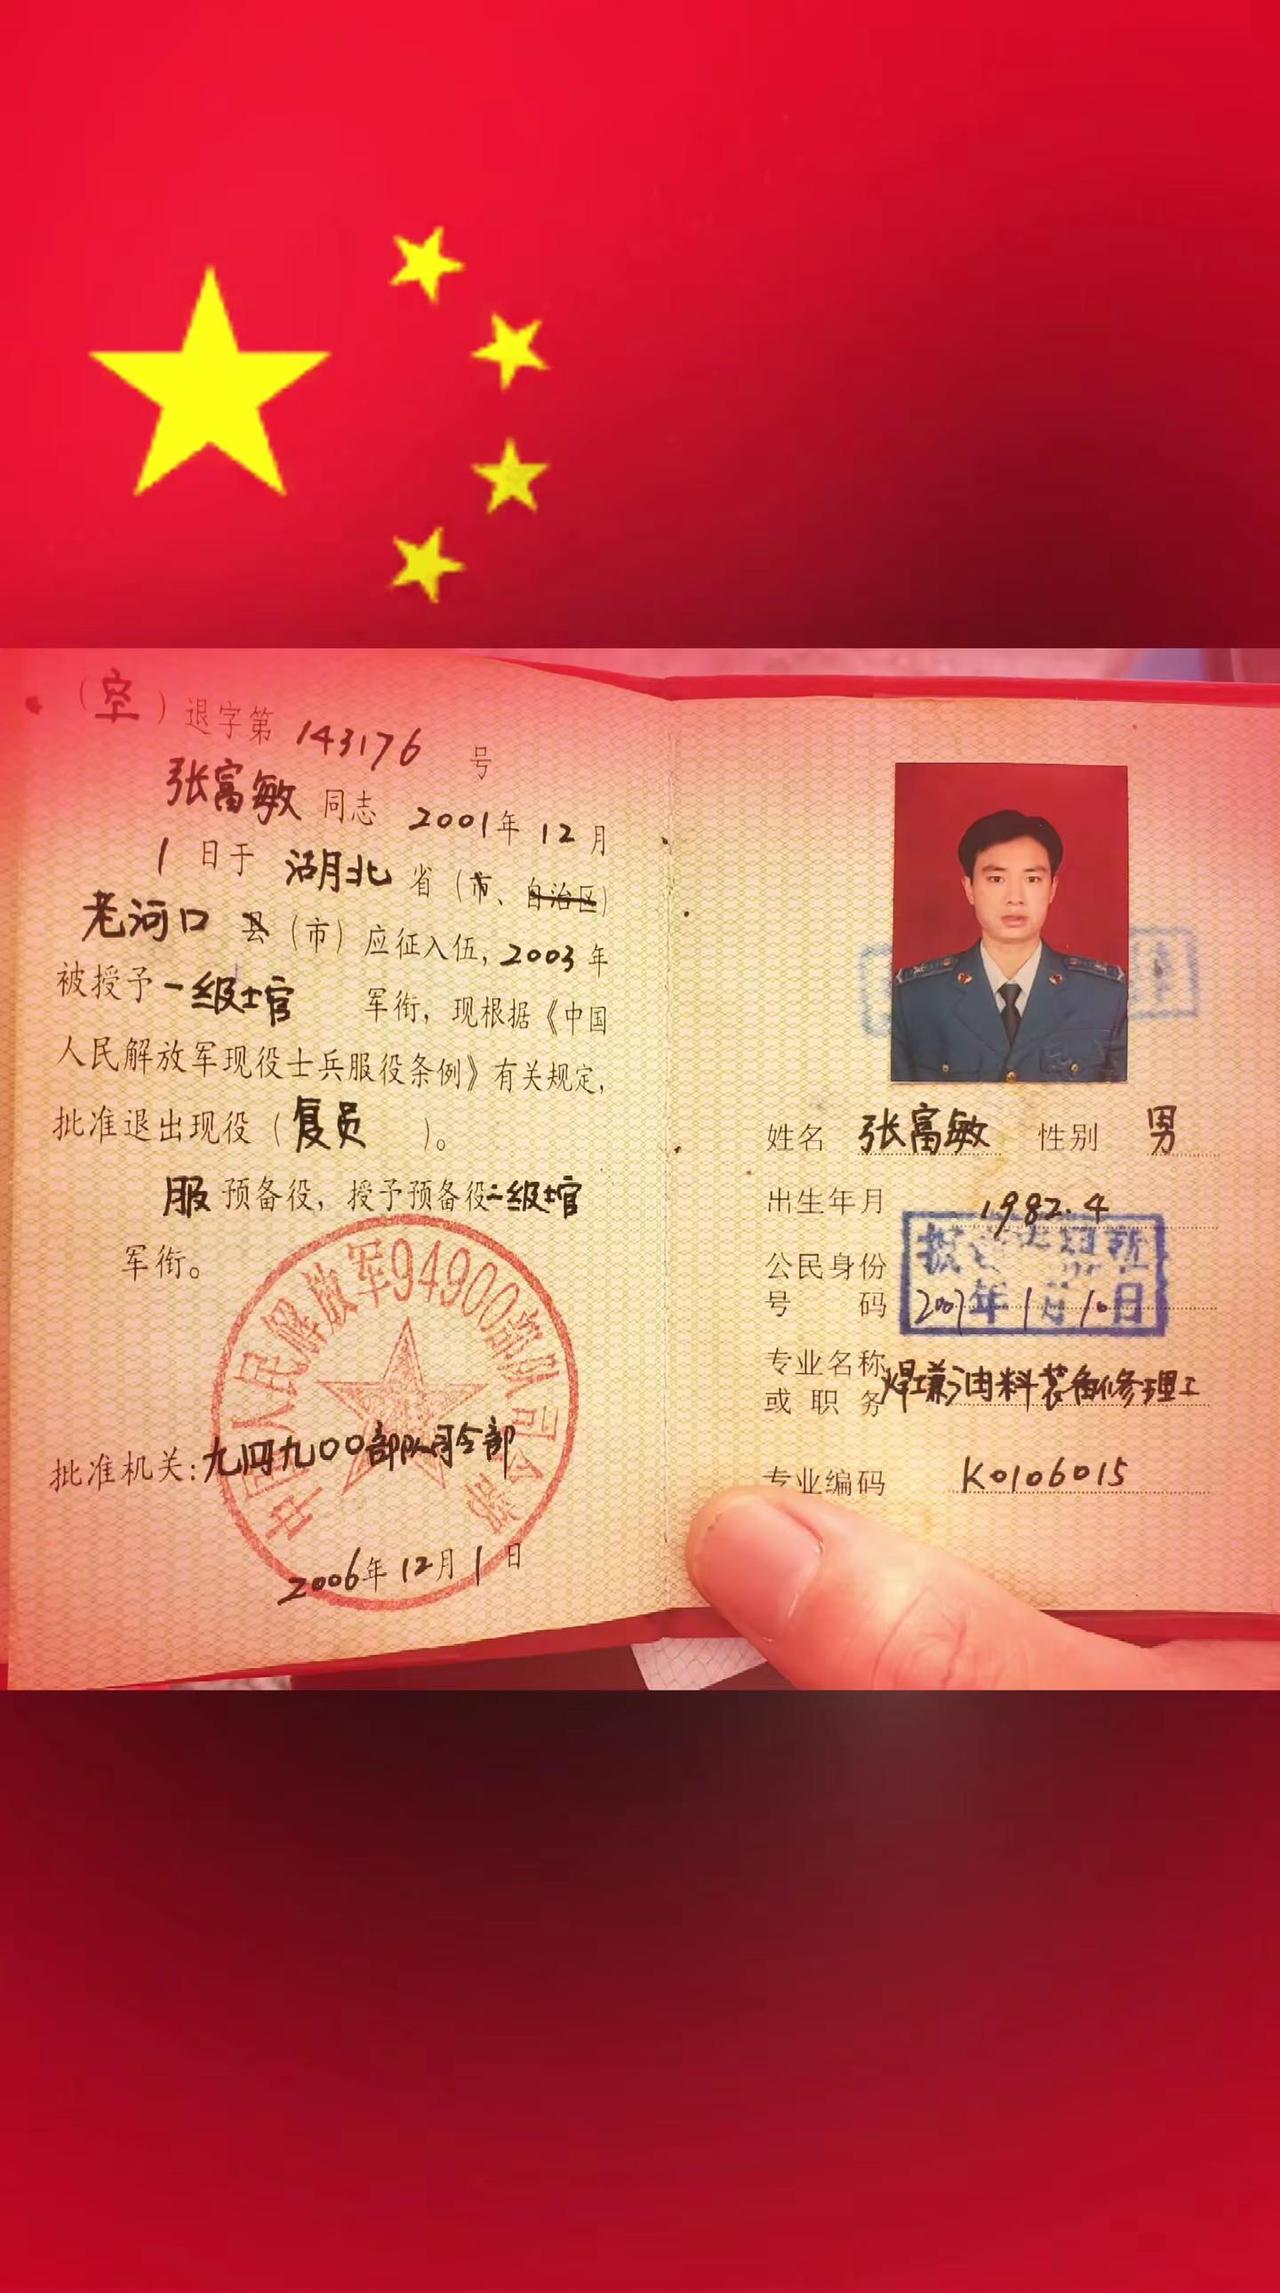 （空）退字第 143176 号
张富敏 同志 2001年 12 月
1 日于 湖北 省（市、自治区）
老河口 县（市）应征入伍，2003 年
被授予 一级士官 军衔，现根据《中国
人民解放军现役士兵服役条例》有关规定，
批准退出现役（复员）。
服 预备役，授予预备役二级士官
军衔。
中国人民解放军94900部队司令部
批准机关：九四九00部队司令部
2006年 12月 1 日
姓名 张富敏 性别 男
出生年月 1982.4
公民身份
号 码
2007年 1月 10日
专业名称
或 职 务 焊接油料装备修理工
专业编码 K0106015